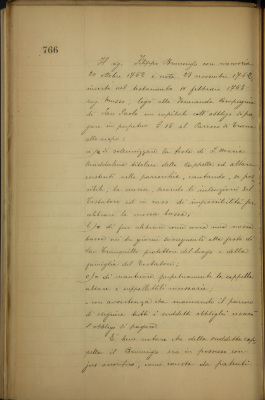 766
Il sig. Filippo Brunengo con
20 ottobre 1752 e nota 24 novembre 1752,
inserta nel testamento 10 febbraio 1753
legò alla Veneranda Compagnia
di San Paolo un capitale coll' obbligo di pa-
gare in perpetuo al Parroco di
a/o di solennizzare la festa di S. Maria
Maddalena titolare della Cappella ed altare
esistenti nella parrochia, cantando, se pos-
sibile, la messa, secondo le intenzioni del
Testatore ed in caso di impossibilità far
celebrare la messa bassa;
b/o di far celebrare ogni anno una messa
bassa in un giorno susseguente alla festa di
San protettore del luogo e della
famiglia del Testatore;
c/o di mantenere perpetuamente la cappella,
altare e suppellettili necessarie;
con avvertenza che mancando il parroco
di eseguire tutti i suddetti obblighi cesserà
l' obbligo di pagare.
È bene notare che della suddetta cap-
pella il Brunengo era in possesso con
jus onorifico, come consta da patenti